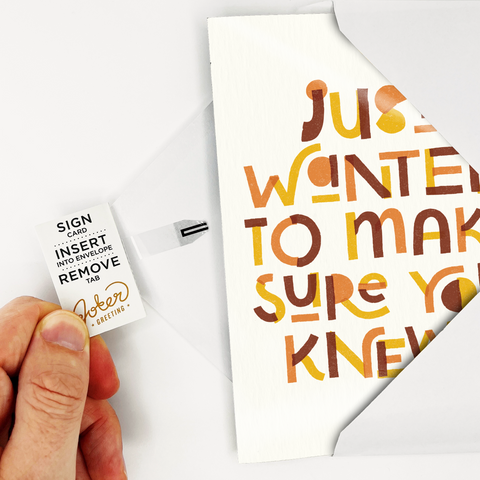 SIGN
CARD
INSERT
INTO ENVELOPE
REMOVE
TAB
Joker
• GREETING •
JUS
WANTE
TO MAK
SURE YO
KNEW